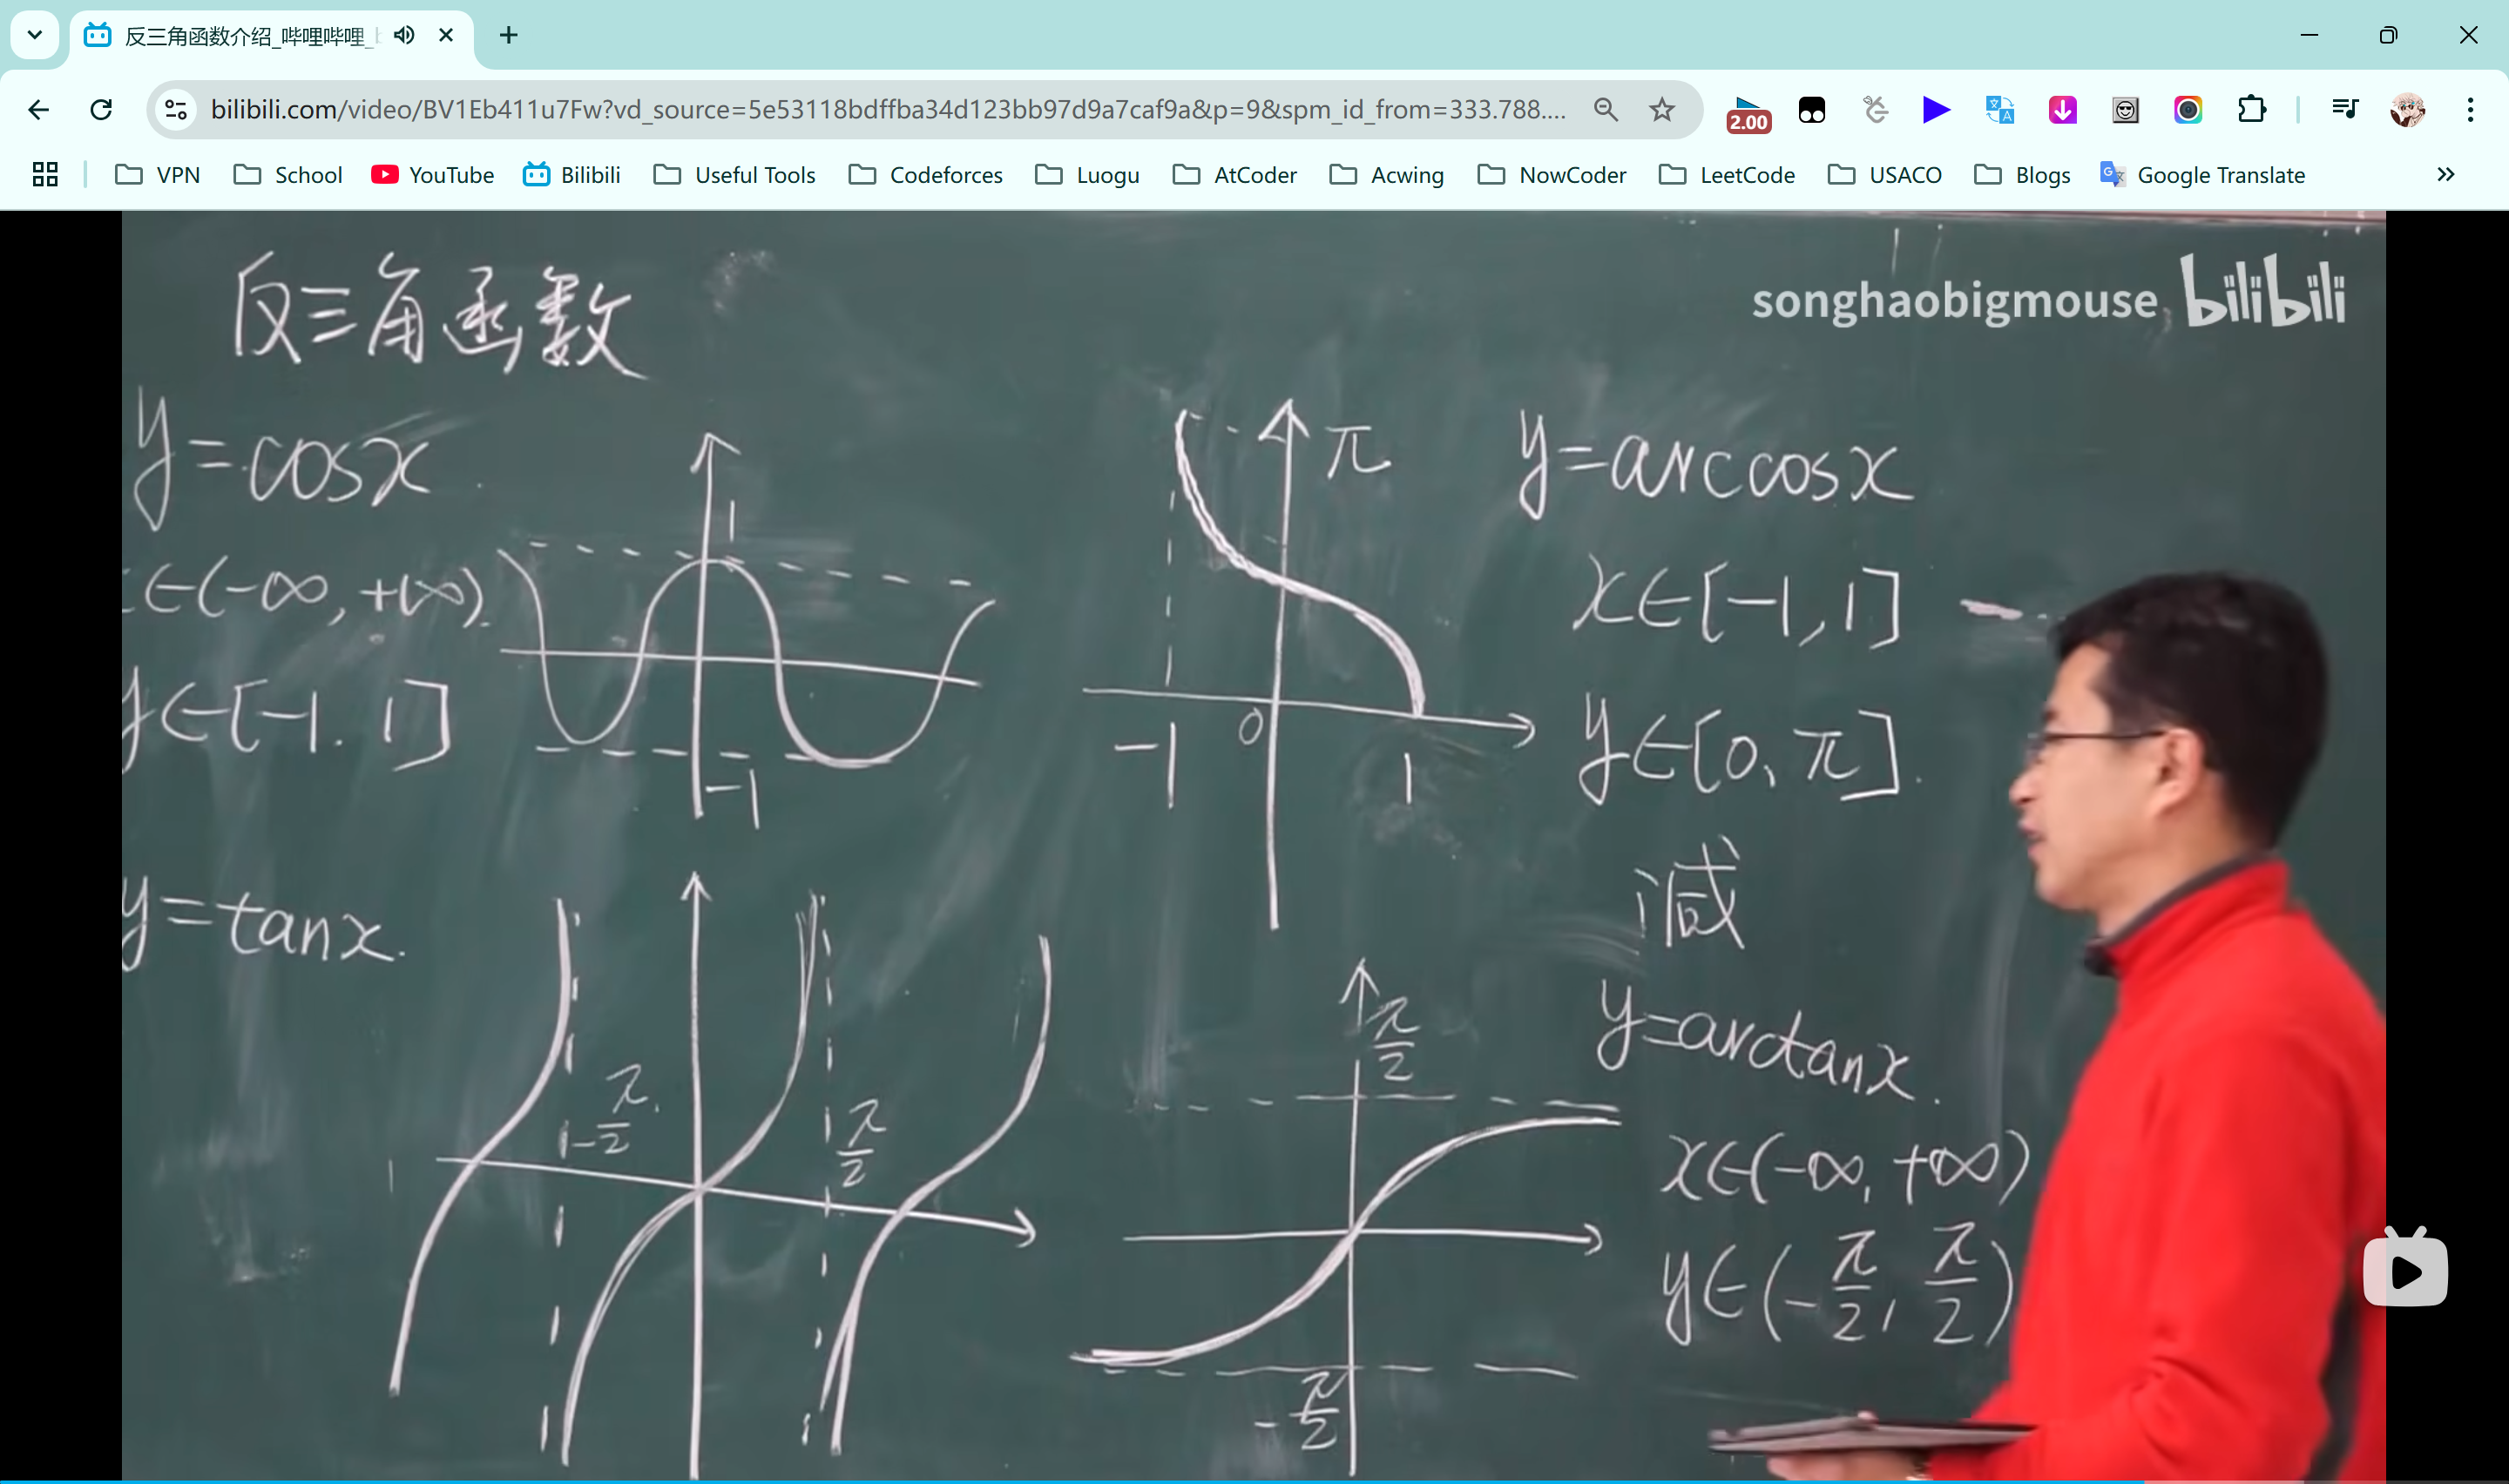 反三角函数介绍_哔哩哔哩_
bilibili.com/video/BV1Eb411u7Fw?vd_source=5e53118bdffba34d123bb97d9a7caf9a&p=9&spm_id_from=333.788....
2.00
VPN School YouTube Bilibili Useful Tools Codeforces Luogu AtCoder Acwing NowCoder LeetCode USACO Blogs Google Translate
songhaobigmouse, bilibili
反三角函数
y=cosx
∈(-∞,+∞)
y∈[-1.1]
1
-1
π
-1
0
1
y=arccosx
x∈[-1,1]
y∈[0,π].
减
y=tanx.
-π/2
π/2
π/2
-π/2
y=arctanx.
x∈(-∞,+∞)
y∈(-π/2,π/2)